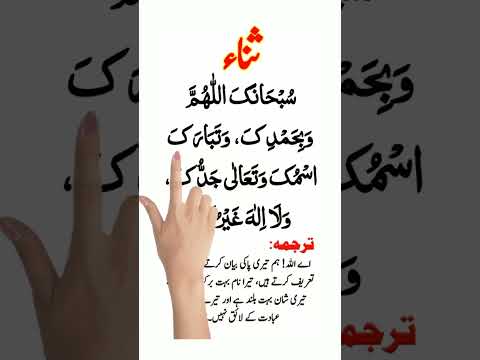 ثناء
سُبْحَانَکَ اللّٰهُمَّ
وَبِحَمْدِکَ، وَتَبَارَکَ
اسْمُکَ وَتَعَالٰی جَدُّکَ،
وَلَا اِلٰهَ غَیْرُ
ترجمہ:
اے اللہ! ہم تیری پاکی بیان کرتے
تعریف کرتے ہیں، تیرا نام بہت
تیری شان بہت بلند ہے اور تیرے
عبادت کے لائق نہیں۔